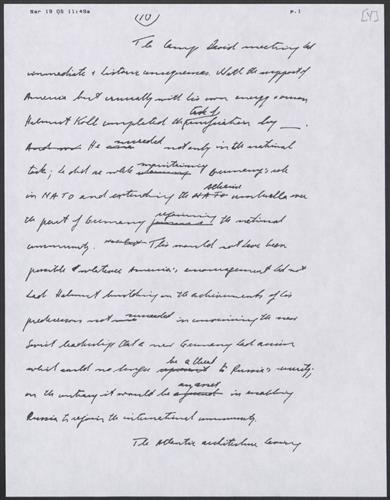 Mar 19 05 11:49a p.1
(10) [4]
The Camp David meeting had
immediate & historic consequences. With the support of
America but crucially with his own energy & vision
task of
Helmut Kohl completed the unification by __.
succeeded
And He not only in the national
maintaining
task; he did so while Germany's role
alliance
in NATO and extending the NATO umbrella over
rejoining
the part of Germany the national
community. This would not have been
possible & whatever America's encouragement had not
had Helmut building on the achievements of his
predecessors not succeeded in convincing the new
Soviet leadership that a new Germany had arisen
be a threat
which could no longer to Russia's security;
an asset
on the contrary it would be in enabling
Russia to rejoin the international community.
The Atlantic architecture